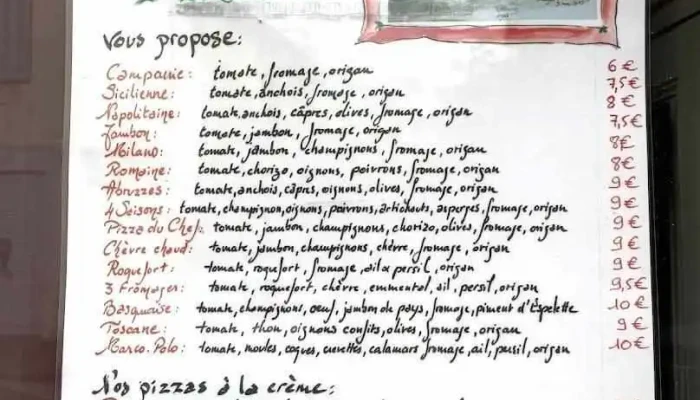 Vous propose:
Campanie: tomate, fromage, origan 6€
Sicilienne: tomate, anchois, fromage, origan 7,5€
Napolitaine: tomate, anchois, câpres, olives, fromage, origan 8€
Jambon: tomate, jambon, fromage, origan 7,5€
Milano: tomate, jambon, champignons, fromage, origan 8€
Romaine: tomate, chorizo, oignons, poivrons, fromage, origan 8€
Abruzzes: tomate, anchois, câpres, oignons, olives, fromage, origan 9€
4 Saisons: tomate, champignon, oignons, poivrons, artichauts, asperges, fromage, origan 9€
Pizza du Chef: tomate, jambon, champignons, chorizo, olives, fromage, origan 9€
Chèvre chaud: tomate, jambon, champignons, chèvre, fromage, origan 9€
Roquefort: tomate, roquefort, fromage, ail & persil, origan 9€
3 Fromages: tomate, roquefort, chèvre, emmental, ail, persil, origan 9,5€
Basquaise: tomate, champignons, oeuf, jambon de pays, fromage, piment d'Espelette 10€
Toscane: tomate, thon, oignons confits, olives, fromage, origan 9€
Marco.Polo: tomate, moules, coques, crevettes, calamars fromage, ail, persil, origan 10€
Nos pizzas à la crème: